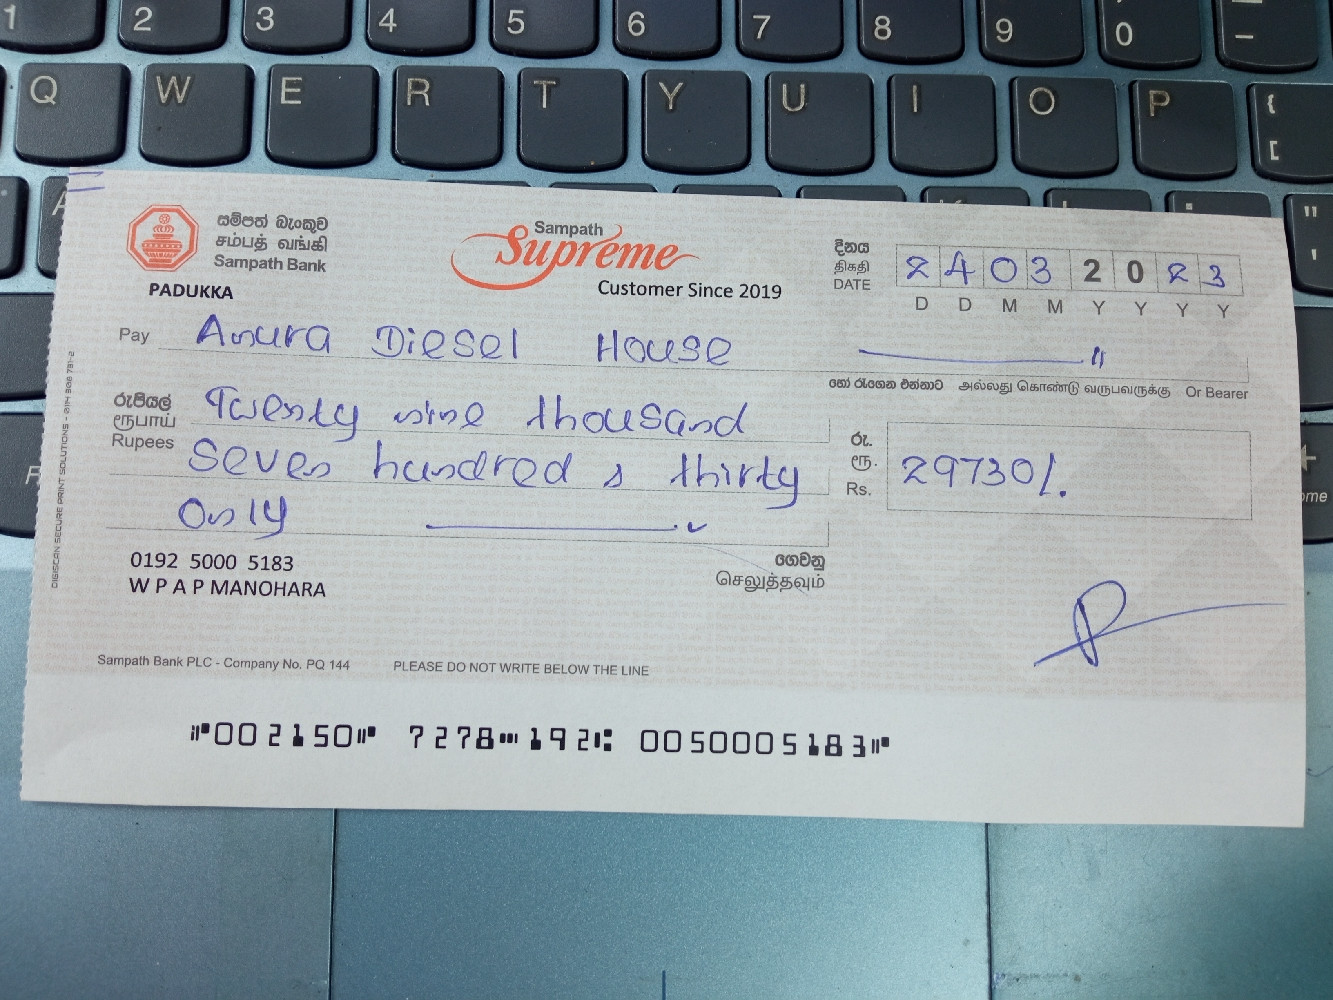 1 2 3 4 5 6 7 8 9 0 -
Q W E R T Y U I O P { [
A " '
සම්පත් බැංකුව
சம்பத் வங்கி
Sampath Bank
PADUKKA
Sampath
Supreme
Customer Since 2019
දිනය
திகதி
DATE
2 4 0 3 2 0 2 3
D D M M Y Y Y Y
Pay Anura Diesel House
හෝ රැගෙන එන්නාට அல்லது கொண்டு வருபவருக்கு Or Bearer
රුපියල්
ரூபாய்
Rupees
Twenty nine thousand
Seven hundred & thirty
Only
රු.
ரூ.
Rs.
29730/.
0192 5000 5183
W P A P MANOHARA
ගෙවනු
செலுத்தவும்
Sampath Bank PLC - Company No. PQ 144 PLEASE DO NOT WRITE BELOW THE LINE
⑈002150⑈ 7278⑉192⑆ 0050005183⑈